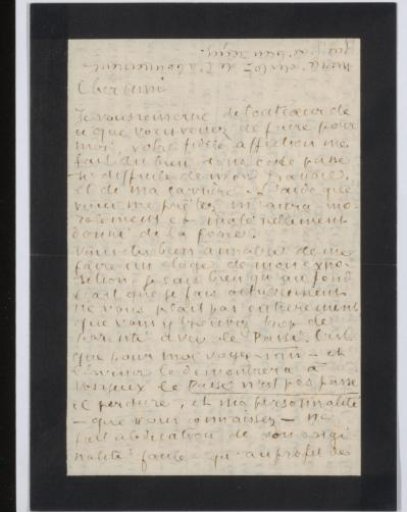 Cher ami
Je vous remercie de tout cœur de
ce que vous venez de faire pour
moi, votre fidèle affection me
fait du bien dans cette passe
si difficile de mes travaux
et de ma carrière. L'aide que
vous me prêtez m'aura mo-
ralement et matériellement
donné de la force.
Vous êtes bien aimable de me
faire un éloge de mon expo-
sition, je sais bien qu'au fond
c'est que je fais actuellement
ne vous plaît pas entièrement
que vous y trouvez trop de
parenté avec le Passé. C'est
que pour moi voyez-vous - et
l'avenir le démontrera à
le Passé n'est pas passé
il perdure, et ma personnalité
- que vous connaissez - ne
fait abdication de son origi
nalité qu'au profit de